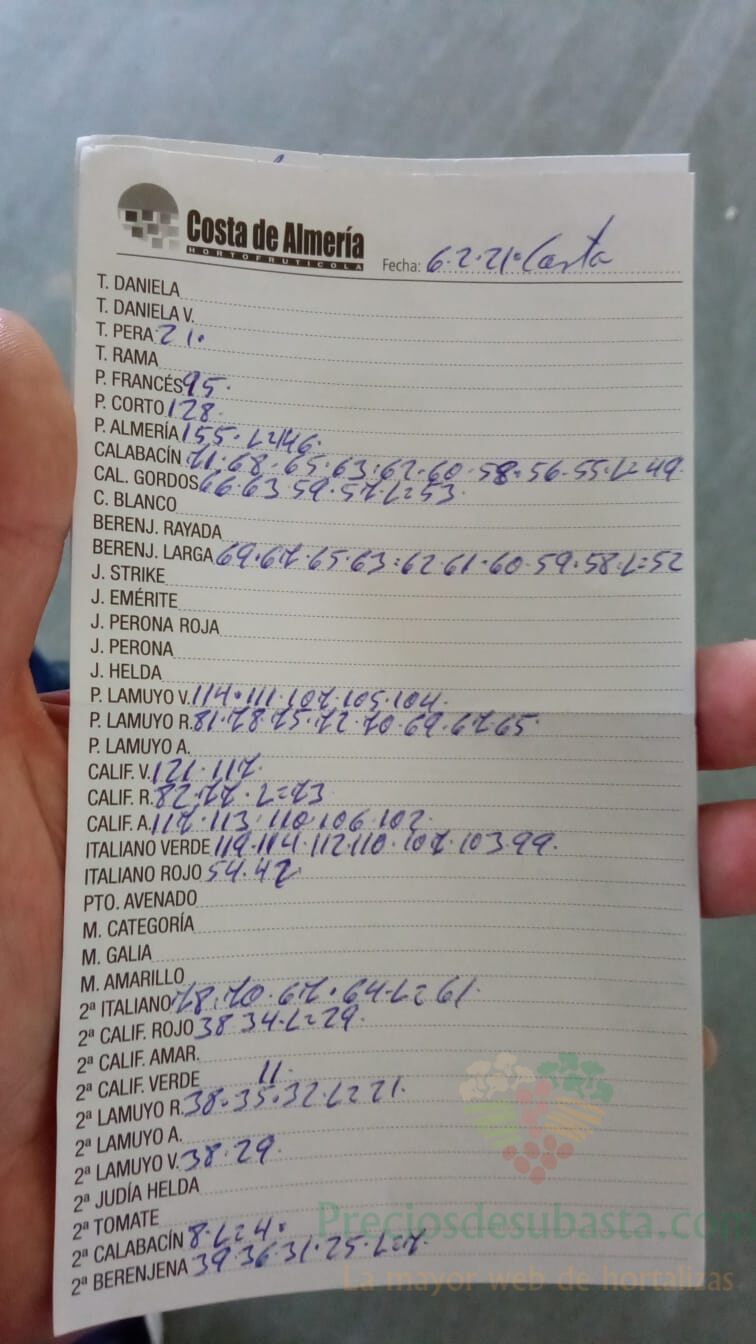 Costa de Almería
HORTOFRUTICOLA
Fecha: 6.2.21. Costa
T. DANIELA
T. DANIELA V.
T. PERA 21.
T. RAMA
P. FRANCÉS 95.
P. CORTO 128.
P. ALMERÍA 155. L=146.
CALABACÍN 71.68.65.63.62.60.58.56.55.L=49
CAL. GORDOS 66.63 59.57.L=53.
C. BLANCO
BERENJ. RAYADA
BERENJ. LARGA 69.67.65.63.62 61.60.59.58.L=52
J. STRIKE
J. EMÉRITE
J. PERONA ROJA
J. PERONA
J. HELDA
P. LAMUYO V. 114.111.107.105.104.
P. LAMUYO R. 81.78.75.72.70.69.67.65.
P. LAMUYO A.
CALIF. V. 121.117.
CALIF. R. 82.77.L=73
CALIF. A. 117.113.110.106.102.
ITALIANO VERDE 119.114.112.110.107.103.99.
ITALIANO ROJO 54.42.
PTO. AVENADO
M. CATEGORÍA
M. GALIA
M. AMARILLO
2ª ITALIANO 78.70.67.64.L=61.
2ª CALIF. ROJO 38 34.L=29.
2ª CALIF. AMAR.
2ª CALIF. VERDE 11.
2ª LAMUYO R. 38.35.32.L=21.
2ª LAMUYO A.
2ª LAMUYO V. 38.29.
2ª JUDÍA HELDA
2ª TOMATE
2ª CALABACÍN 8.L=4.
2ª BERENJENA 39.36.31.25.L=7.
Preciosdesubasta.com
La mayor web de hortalizas